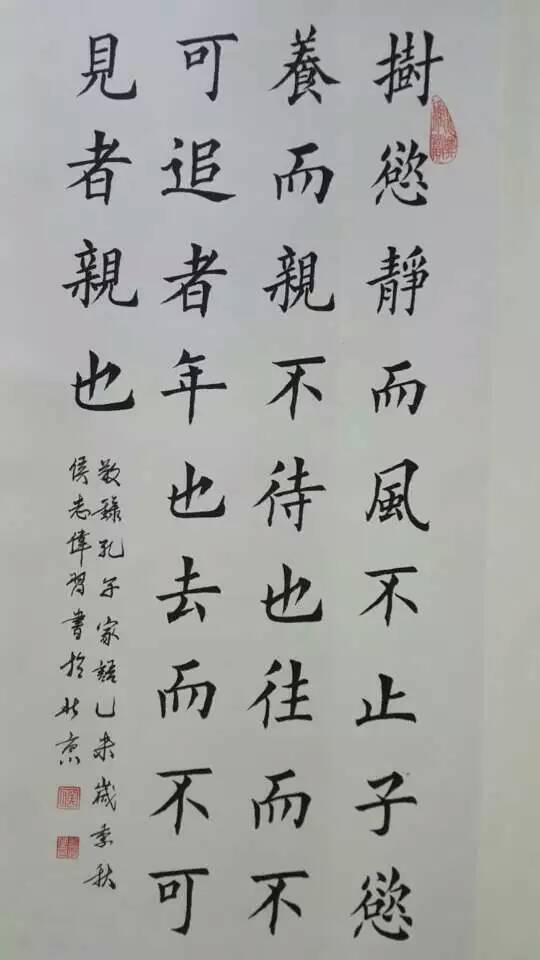 樹慾靜而風不止子慾
養而親不待也往而不
可追者年也去而不可
見者親也
敬錄孔子家語乙未歲季秋
侯志偉習書於北京